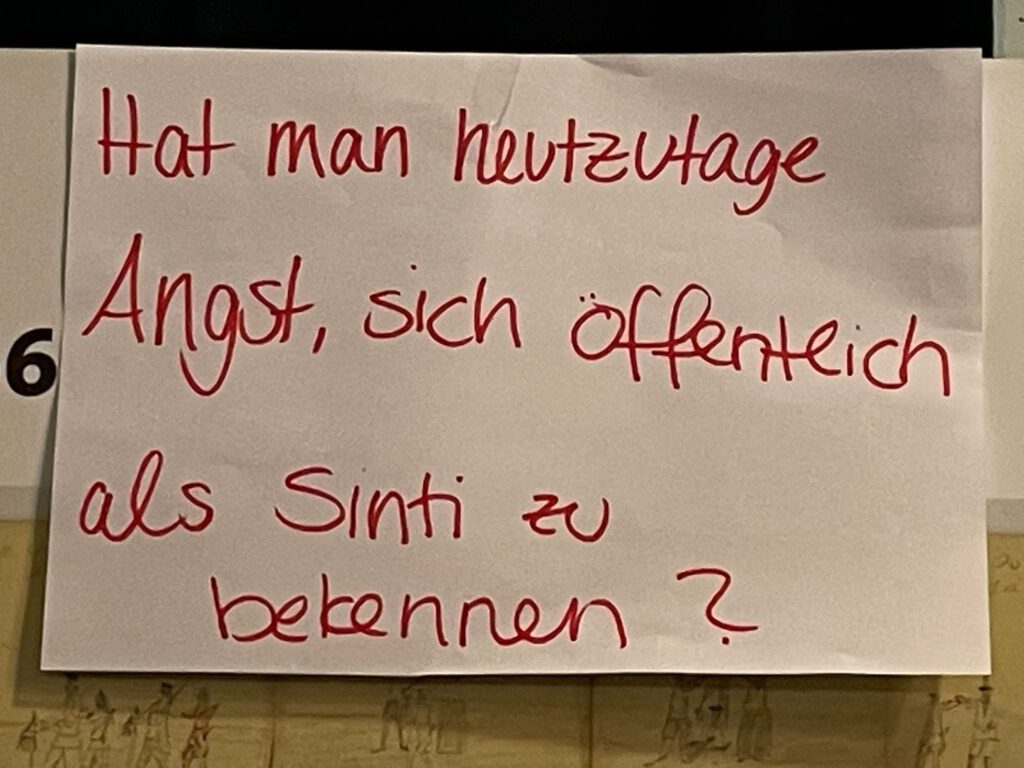 Hat man heutzutage
Angst, sich öffentlich
als Sinti zu
bekennen?
6